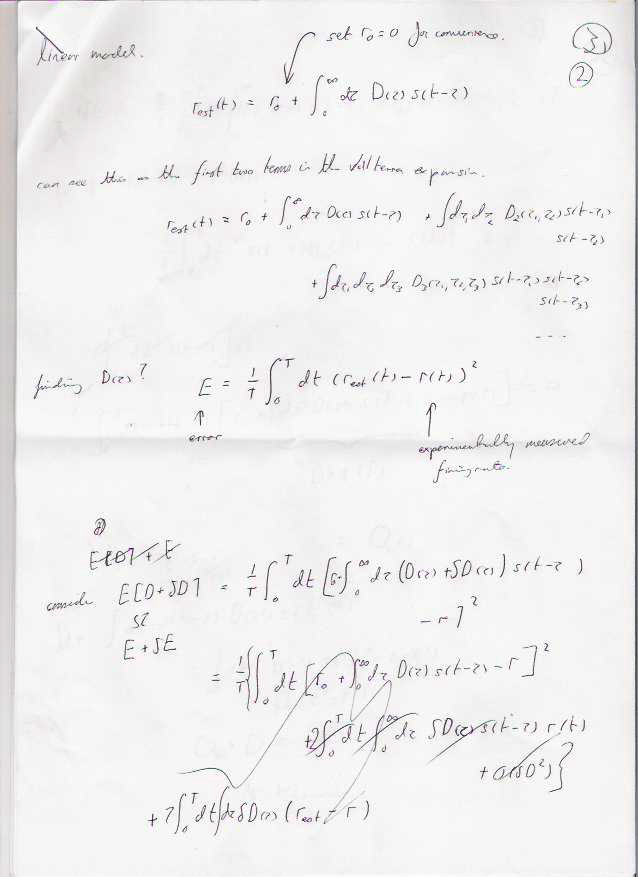 set r₀=0 for convenience.
③
②
linear model.
r_est(t) = r₀ + ∫₀^∞ dτ D(τ) s(t-τ)
can see this as the first two terms in the Volterra expansion.
r_est(t) = r₀ + ∫₀^∞ dτ D(τ) s(t-τ) + ∫dτ₁dτ₂ D₂(τ₁,τ₂) s(t-τ₁)
s(t-τ₂)
+ ∫dτ₁dτ₂dτ₃ D₃(τ₁,τ₂,τ₃) s(t-τ₁) s(t-τ₂)
s(t-τ₃)
---
finding D(τ)? E = 1/T ∫₀^T dt (r_est(t) - r(t))²
↑ ↑
error experimentally measured
firing rate.
E[D] + E
consider E[D+δD] = 1/T ∫₀^T dt [r₀+∫₀^∞ dτ (D(τ)+δD(τ)) s(t-τ)
- r]²
E + δE
= 1/T {∫₀^T dt [r₀ + ∫₀^∞ dτ D(τ) s(t-τ) - r]²
+2∫₀^T dt ∫₀^∞ dτ δD(τ) s(t-τ) r(t)
+ O(δD²)}
+ 2∫₀^T dt∫dτ δD(τ) (r_est - r)